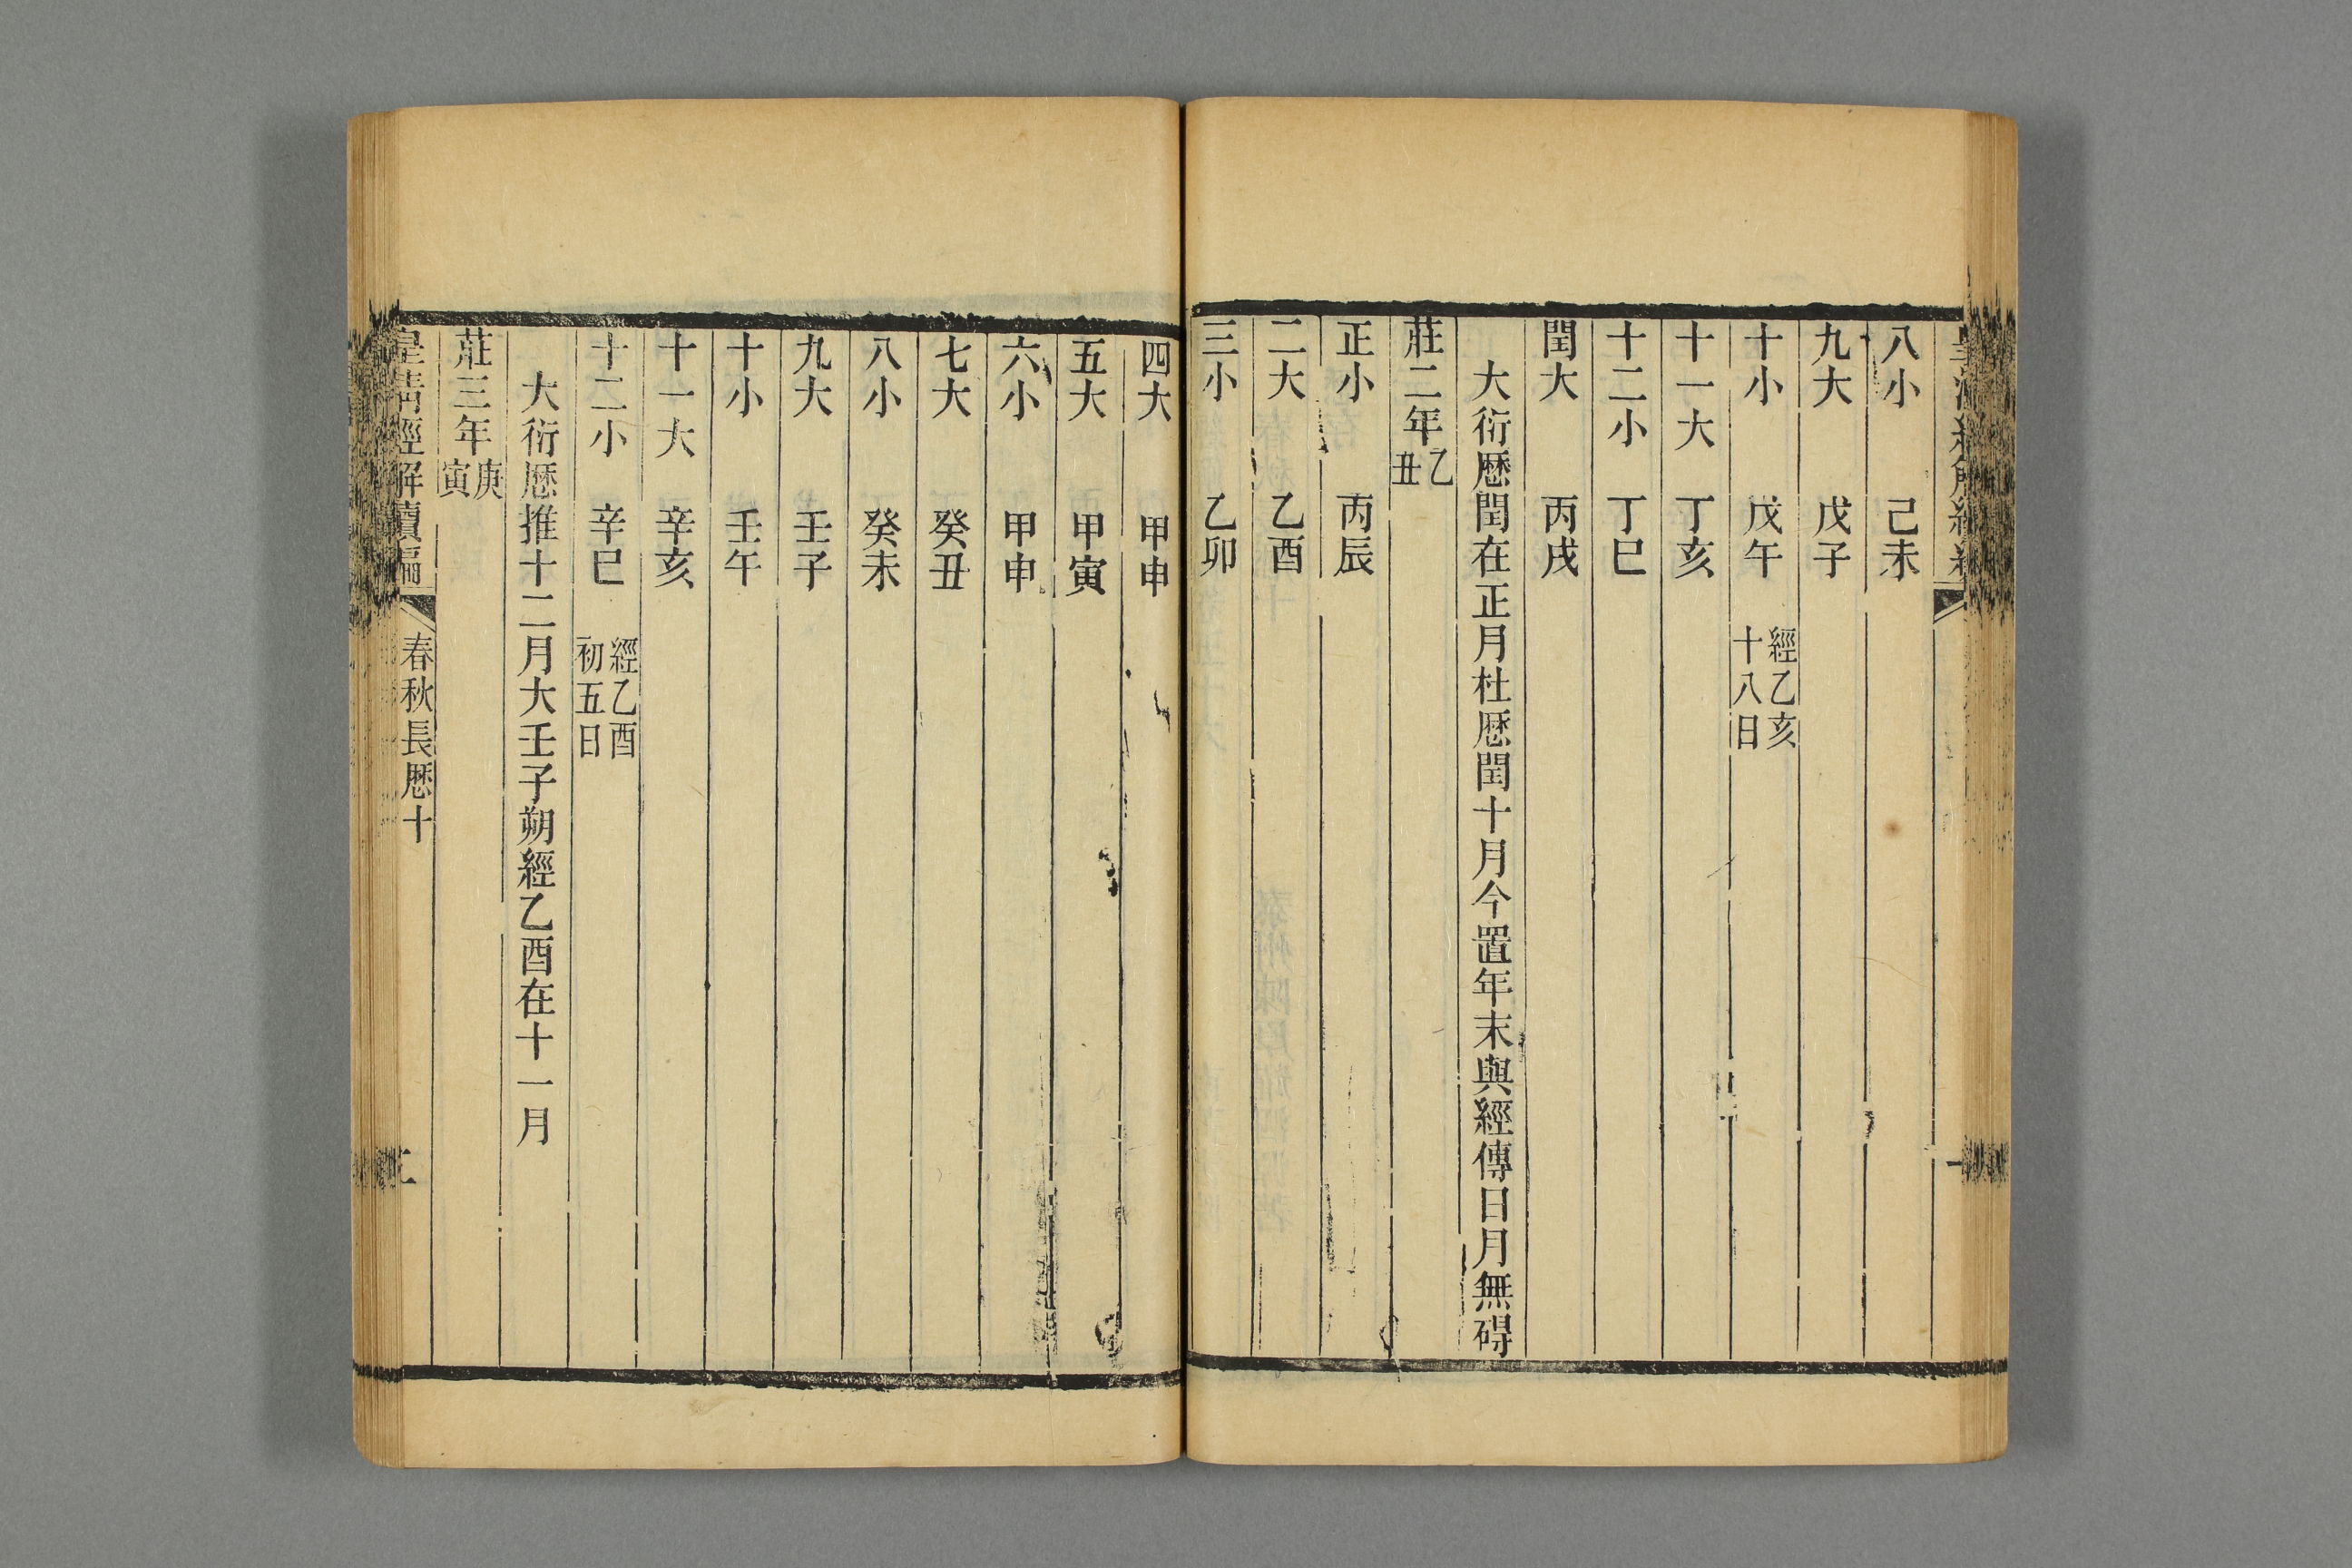 八小 己未
九大 戊子
十小 戊午 經乙亥十八日
十一大 丁亥
十二小 丁巳
閏大 丙戌
大衍厯閏在正月杜厯閏十月今置年末與經傳日月無碍
莊二年乙丑
正小 丙辰
二大 乙酉
三小 乙卯
四大 甲申
五大 甲寅
六小 甲申
七大 癸丑
八小 癸未
九大 壬子
十小 壬午
十一大 辛亥
十二小 辛巳 經乙酉初五日
大衍厯推十二月大壬子朔經乙酉在十一月
莊三年庚寅
皇清經解續編 春秋長厯十